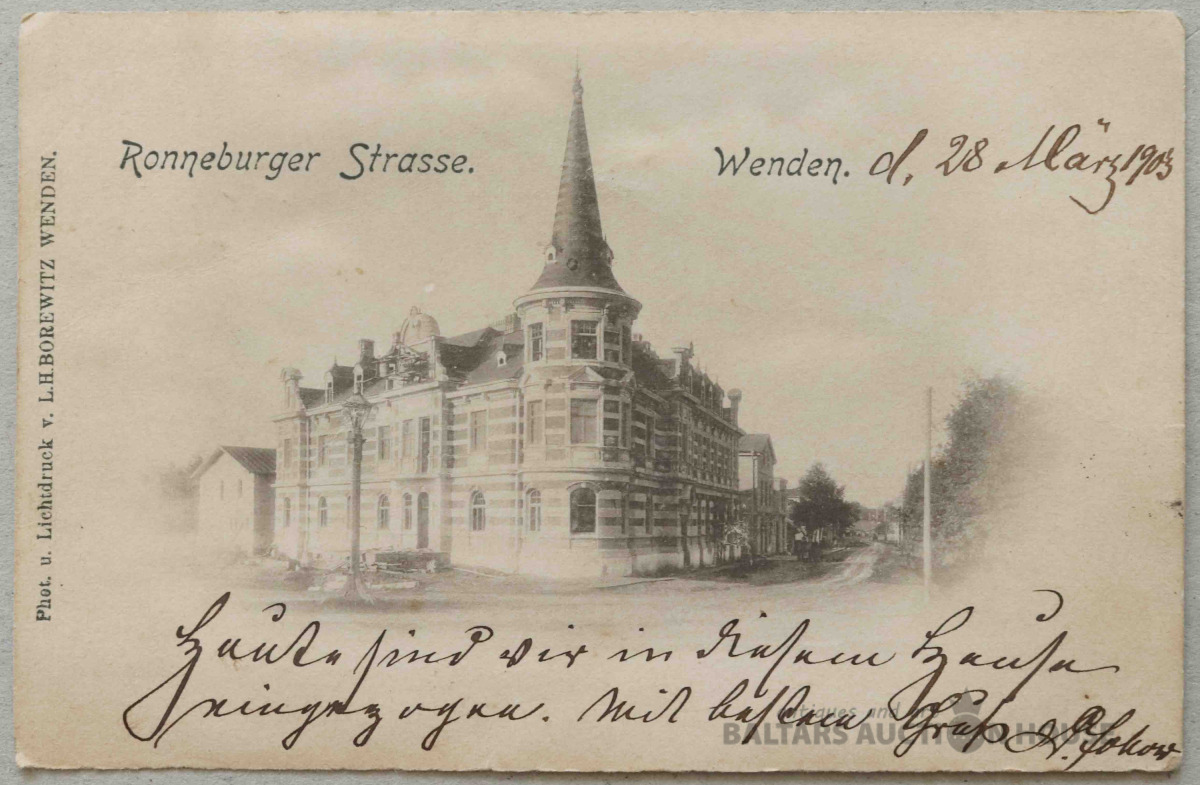 Ronneburger Strasse.
Wenden. d. 28 März 1903
Phot. u. Lichtdruck v. L.H.BOREWITZ WENDEN.
Heute sind wir in diesem Hause
eingezogen. Mit bestem Gruß
Antiques and Art
BALTARS AUCTION HOUSE